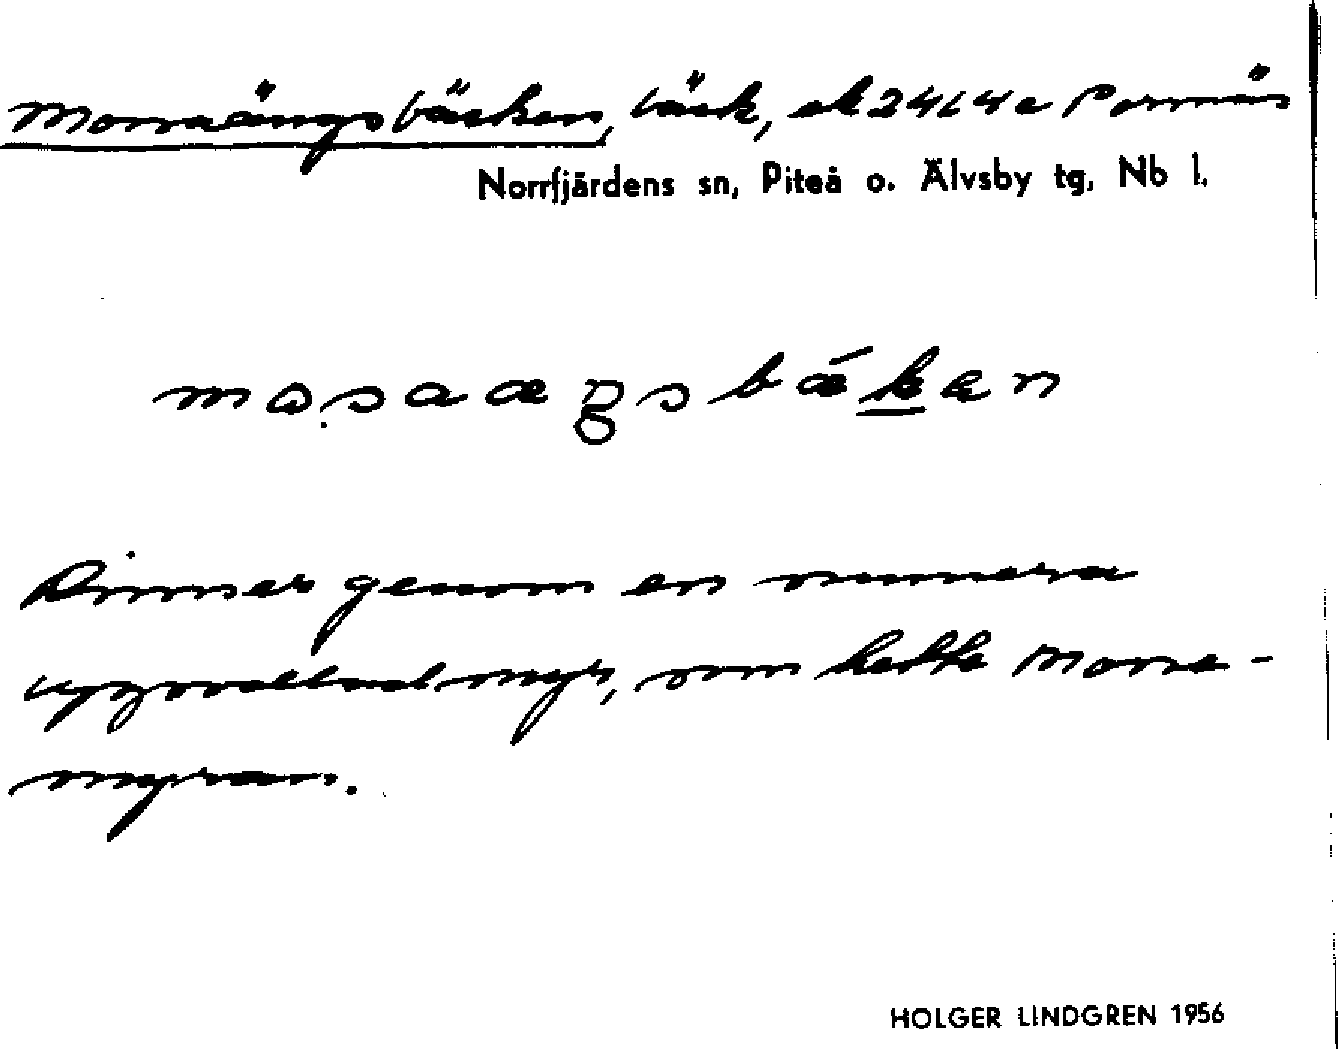 Morraängsbäcken, bäck, ek 24L4e Porsnäs
Norrfjärdens sn, Piteå o. Älvsby tg, Nb l.
Rinner genom en numera
uppodlad myr, som hette Morra-
myran.
HOLGER LINDGREN 1956